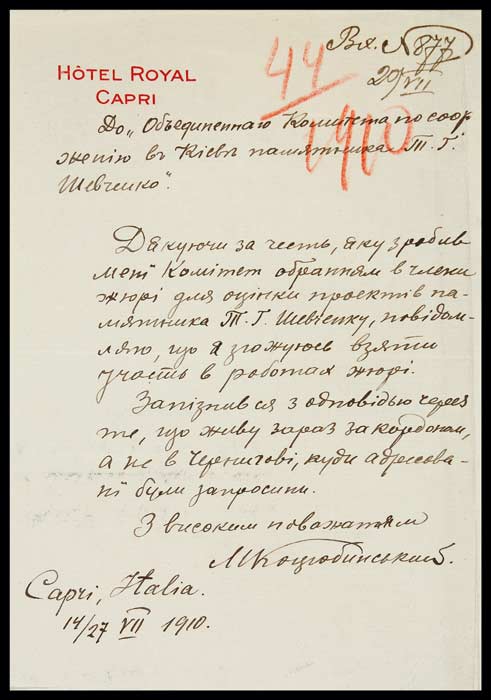 HÔTEL ROYAL
CAPRI
Вх. № 877
20/VII
44
1910
До „Объединеннаго Комитета по соор
женію въ Кіевѣ памятника Т. Г.
Шевченко".
Дякуючи за честь, яку зробив
мені Комітет обранням в члени
жюрі для оцінки проектів па-
мятника Т. Г. Шевченку, повідом-
ляю, що я згожуюсь взяти
участь в роботах жюрі.
Запізнився з одповідью через
те, що живу зараз за кордоном,
а не в Чернигові, куди адресова-
ні були запросини.
З високим поважанням
МКоцюбинський.
Capri, Italia.
14/27 VII 1910.